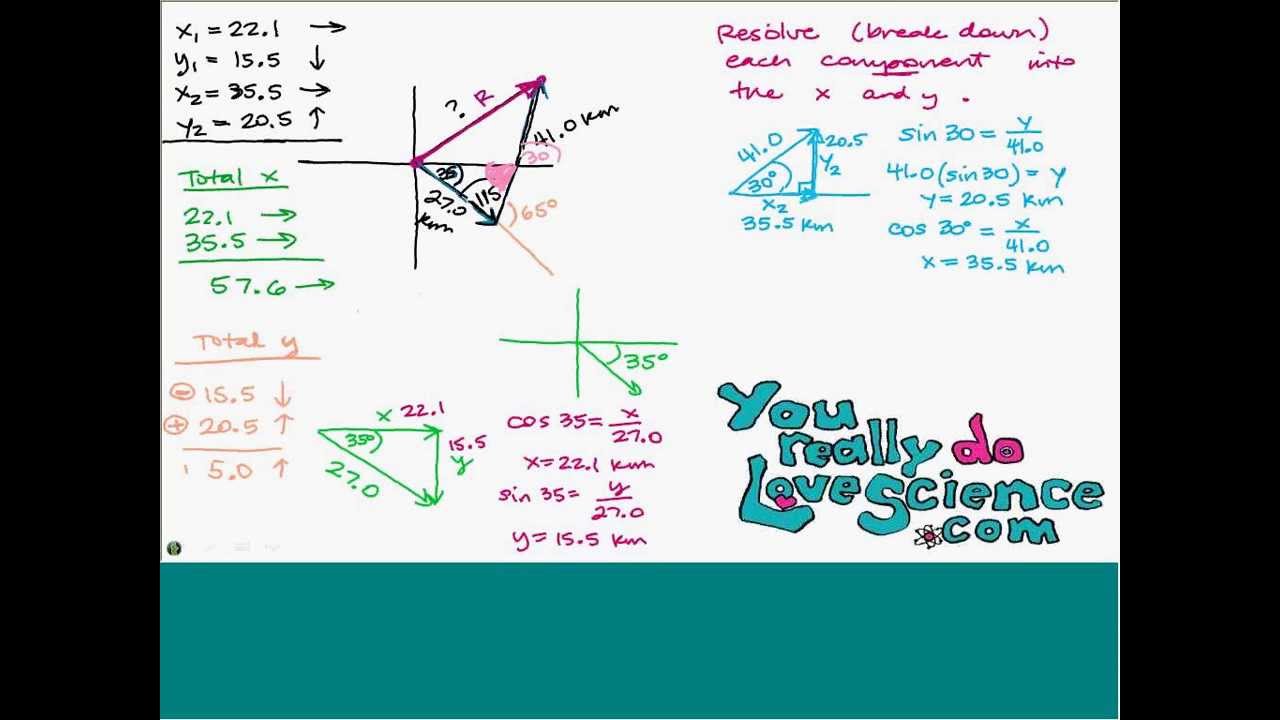 x₁ = 22.1 →
y₁ = 15.5 ↓
x₂ = 35.5 →
y₂ = 20.5 ↑
Total x
22.1 →
35.5 →
57.6 →
Total y
⊖ 15.5 ↓
⊕ 20.5 ↑
5.0 ↑
? R
41.0 km
30
35
115
27.0
km
65°
35°
x 22.1
35°
15.5
y
27.0
cos 35 = x/27.0
x = 22.1 km
sin 35 = y/27.0
y = 15.5 km
Resolve (break down)
each component into
the x and y.
41.0
20.5
y₂
30°
x₂
35.5 km
sin 30 = y/41.0
41.0 (sin 30) = y
y = 20.5 km
cos 30° = x/41.0
x = 35.5 km
You
really do
Love Science
.com